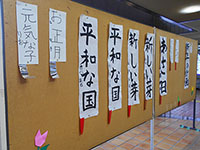 元気な子
お正月
平和な国
平和な国
新しい芽
新しい芽
あさ日